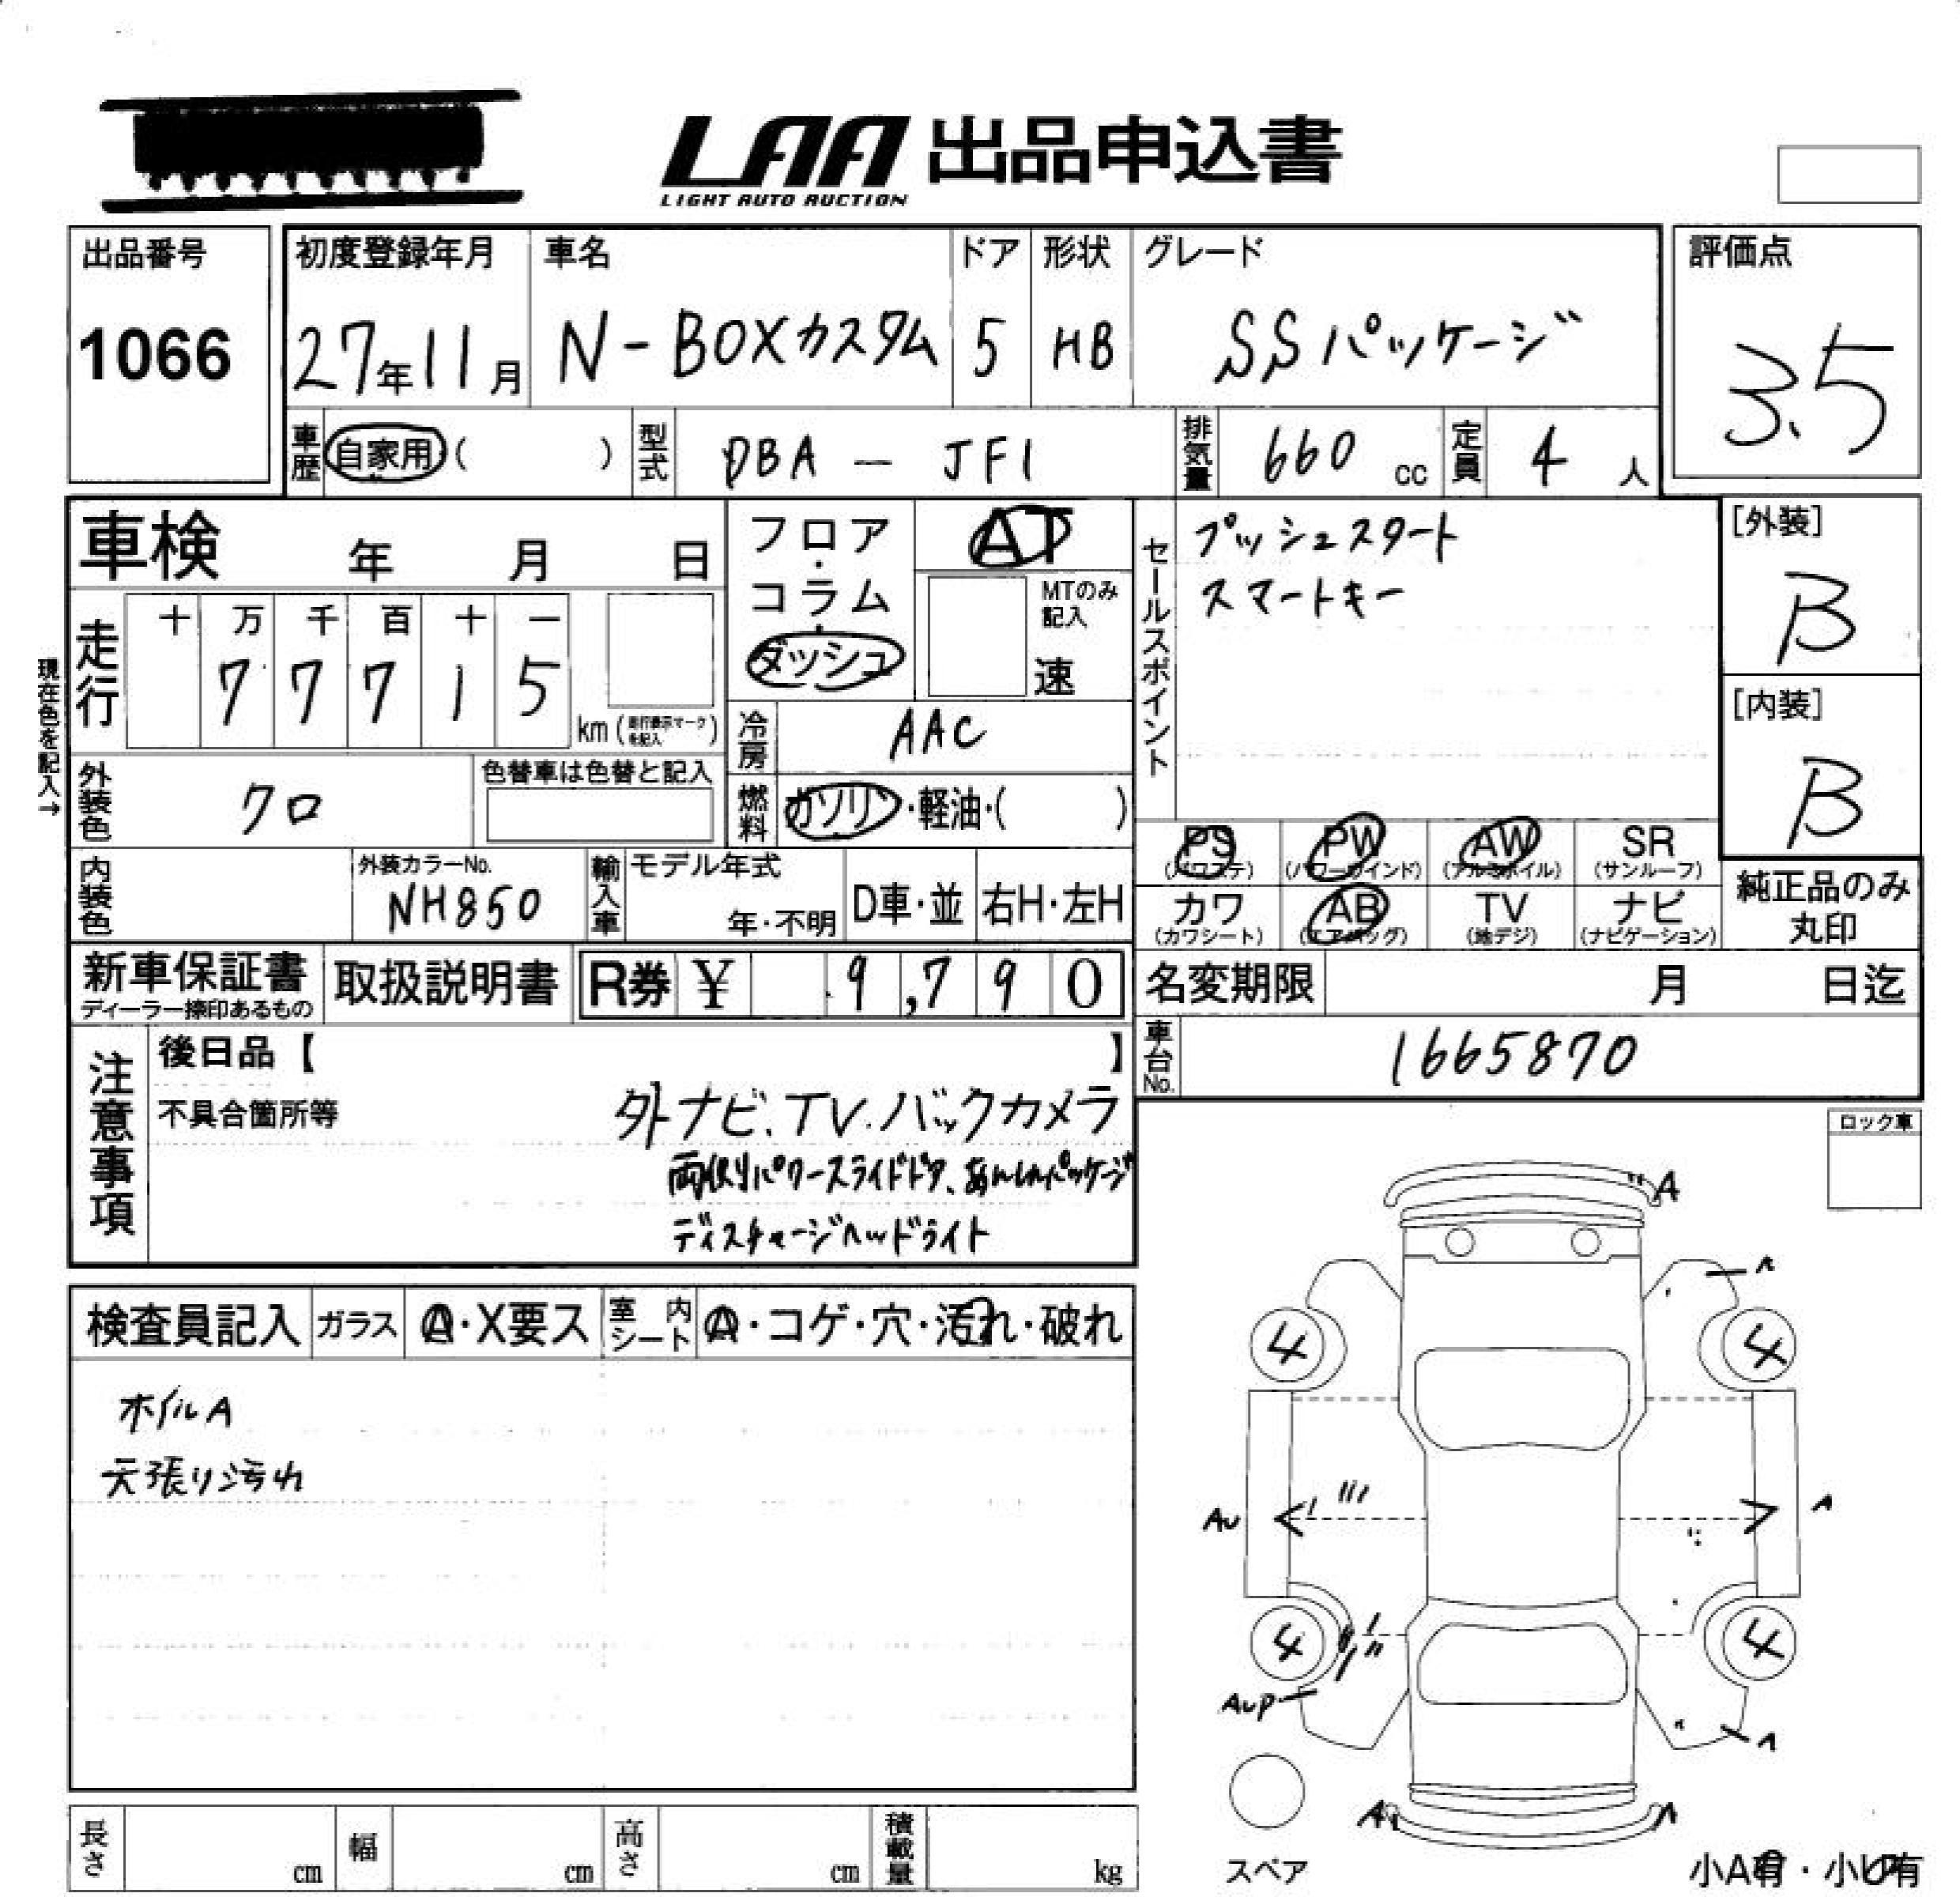 LAA 出品申込書
LIGHT AUTO AUCTION
出品番号
1066
初度登録年月
27年11月
車名
N-BOXカスタム
ドア
5
形状
HB
グレード
SSパッケージ
評価点
3.5
車歴 自家用 ( )
型式 DBA - JF1
排気量 660 cc
定員 4 人
車検 年 月 日
フロア・コラム・ダッシュ
AT
MTのみ記入
速
セールスポイント
プッシュスタート
スマートキー
[外装]
B
[内装]
B
現在色を記入→
走行
十 万 千 百 十 一
7 7 7 1 5
km (走行表示マークを記入)
冷房 AAC
外装色 クロ
色替車は色替と記入
燃料 ガソリン・軽油・( )
PS (パワステ) PW (パワーウインド) AW (アルミホイル) SR (サンルーフ)
カワ (カワシート) AB (エアバッグ) TV (地デジ) ナビ (ナビゲーション)
純正品のみ
丸印
内装色
外装カラーNo.
NH850
輸入車
モデル年式
年・不明
D車・並
右H・左H
新車保証書
ディーラー捺印あるもの
取扱説明書
R券 ¥ 9,790
名変期限 月 日迄
車台No. 1665870
注意事項
後日品【 】
不具合箇所等
外ナビ.TV.バックカメラ
両側パワースライドドア、あんしんパッケージ
ディスチャージヘッドライト
ロック車
検査員記入 ガラス A・X要ス 室内シート A・コゲ・穴・汚れ・破れ
ホイルA
天張り汚れ
A
A
4
4
AU
A
4
4
AUP
A
A
A
スペア
長さ cm 幅 cm 高さ cm 積載量 kg
小A有・小U有